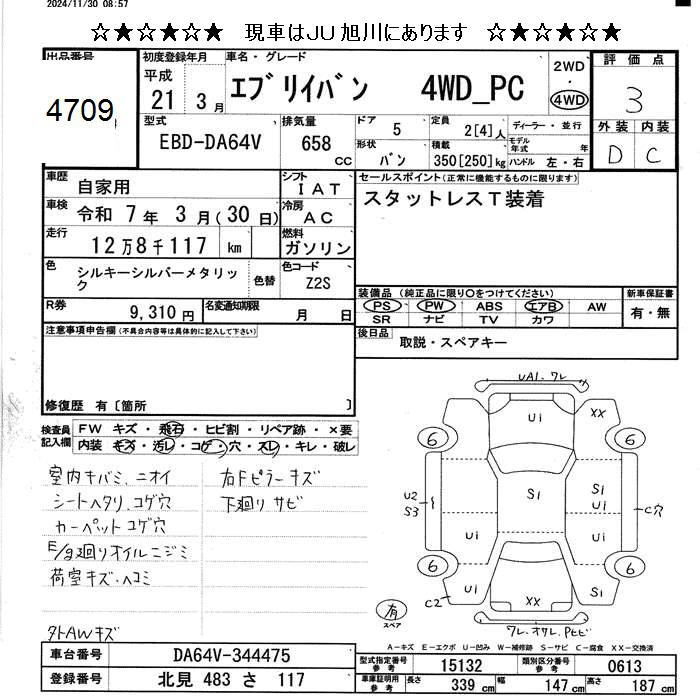 2024/11/30 08:57
☆★☆★☆★ 現車はJU旭川にあります ☆★☆★☆★
出品番号 4709
初度登録年月 平成 21 3月
車名・グレード エブリイバン 4WD_PC
2WD・4WD
評価点 3
外装 D 内装 C
型式 EBD-DA64V
排気量 658 cc
ドア 5
形状 バン
定員 2[4]人
積載 350[250]kg
ディーラー・並行
モデル年式 年
ハンドル 左・右
車歴 自家用
シフト IAT
車検 令和 7年 3月(30日)
冷房 AC
走行 12万8千117 km
燃料 ガソリン
色 シルキーシルバーメタリック
色替
色コード Z2S
R券 9,310円
名変通知期限 月 日
セールスポイント(正常に機能するものに限ります)
スタットレスT装着
装備品 (純正品に限り○をつけてください)
PS PW ABS エアB AW
SR ナビ TV カワ
新車保証書 有・無
後日品 取説・スペアキー
注意事項申告欄(不具合内容等は具体的に記入して下さい)
修復歴 有〔箇所 〕
検査員記入欄
FW キズ・飛石・ヒビ割・リペア跡・×要
内装 キズ・汚レ・コゲ・穴・スレ・キレ・破レ
室内キバミ、ニオイ
シートヘタリ コゲ穴
カーペット コゲ穴
E/g廻りオイルニジミ
荷室キズ・ヘコミ
右Fピラーキズ
下廻り サビ
外AWキズ
UA1・ワレ
U1
XX
6
6
U2
S3
S1
S1
U1
U1
U1
C穴
6
6
U1
C2
XX
S1
ワレ、オサレ、Pヒビ
有
スペア
A-キズ E-エクボ U-凹み W-補修跡 S-サビ C-腐食 XX-交換済
車台番号 DA64V-344475
登録番号 北見 483 さ 117
型式指定番号 参考 15132
類別区分番号 参考 0613
車庫証明用 参考 長さ 339cm 幅 147cm 高さ 187cm